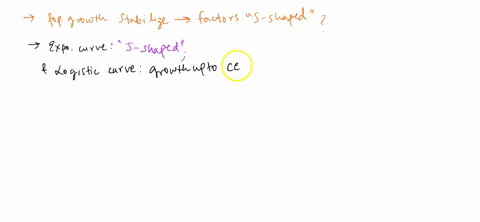 → Pop growth stabilize → factors "S-shaped" ?
→ Expo. curve: "J-shaped";
& Logistic curve: growth upto ce